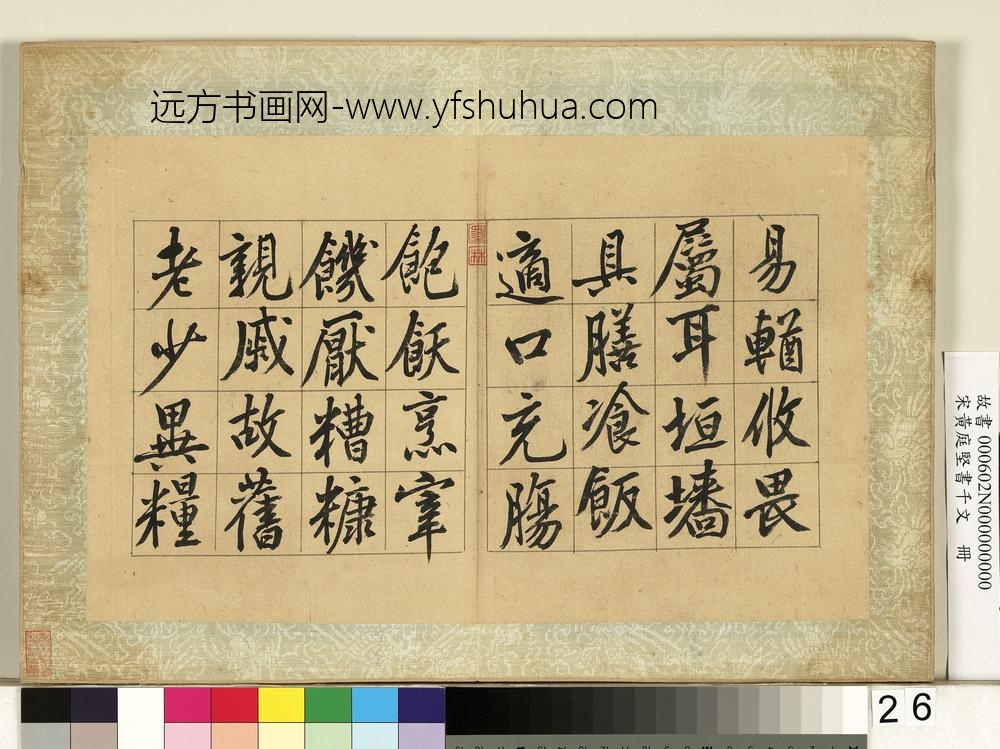 远方书画网-www.yfshuhua.com
易輶攸畏
屬耳垣墻
具膳飡飯
適口充腸
飽飫烹宰
饑厭糟糠
親戚故舊
老少異糧
故書 000602N000000000
宋黃庭堅書千文 冊
26